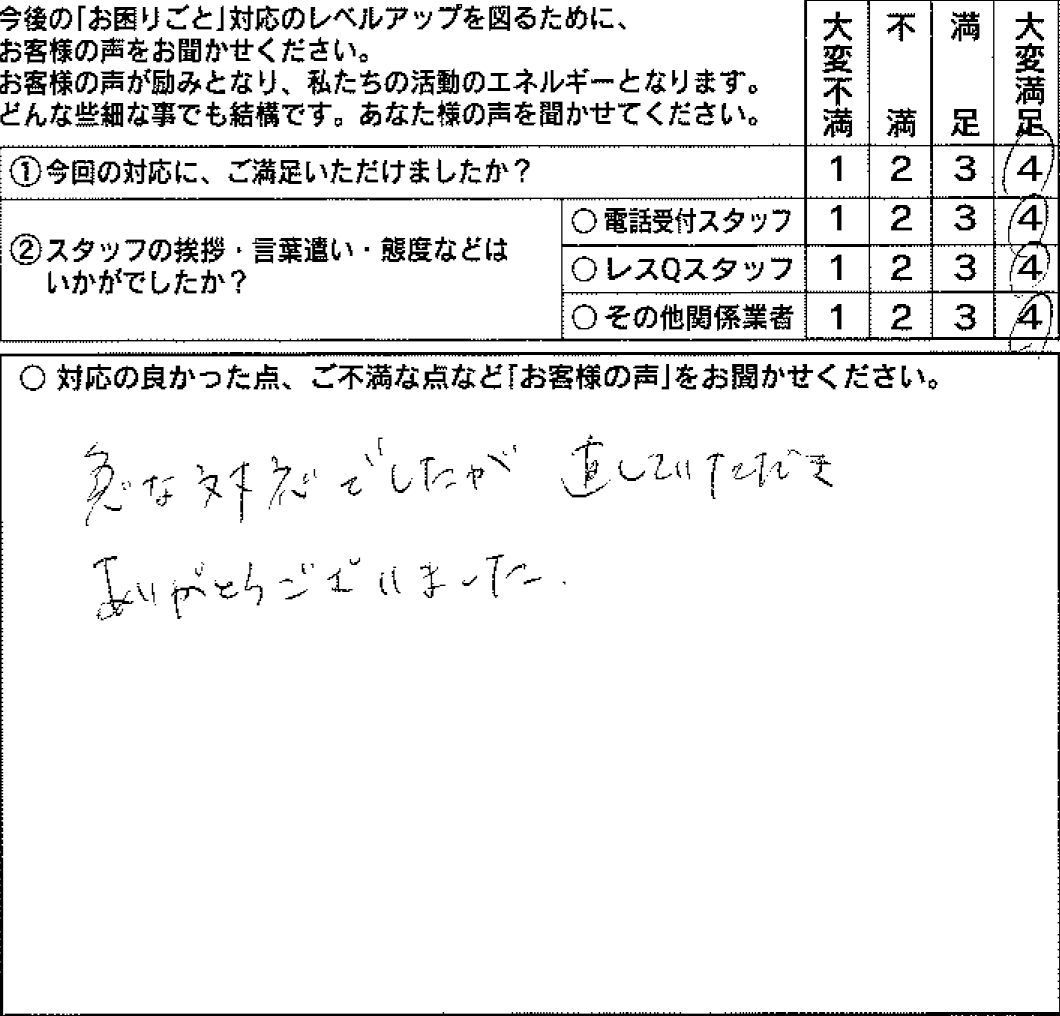 今後の「お困りごと」対応のレベルアップを図るために、
お客様の声をお聞かせください。
お客様の声が励みとなり、私たちの活動のエネルギーとなります。
どんな些細な事でも結構です。あなた様の声を聞かせてください。
大変不満 不満 満足 大変満足
①今回の対応に、ご満足いただけましたか？ 1 2 3 4
②スタッフの挨拶・言葉遣い・態度などは
いかがでしたか？
○電話受付スタッフ 1 2 3 4
○レスQスタッフ 1 2 3 4
○その他関係業者 1 2 3 4
○ 対応の良かった点、ご不満な点など「お客様の声」をお聞かせください。
急な対応でしたが 直していただき
ありがとうございました.